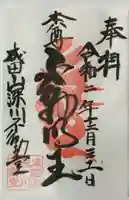 奉拝
令和二年十二月三十一日
本尊
不動明王
成田山深川不動堂